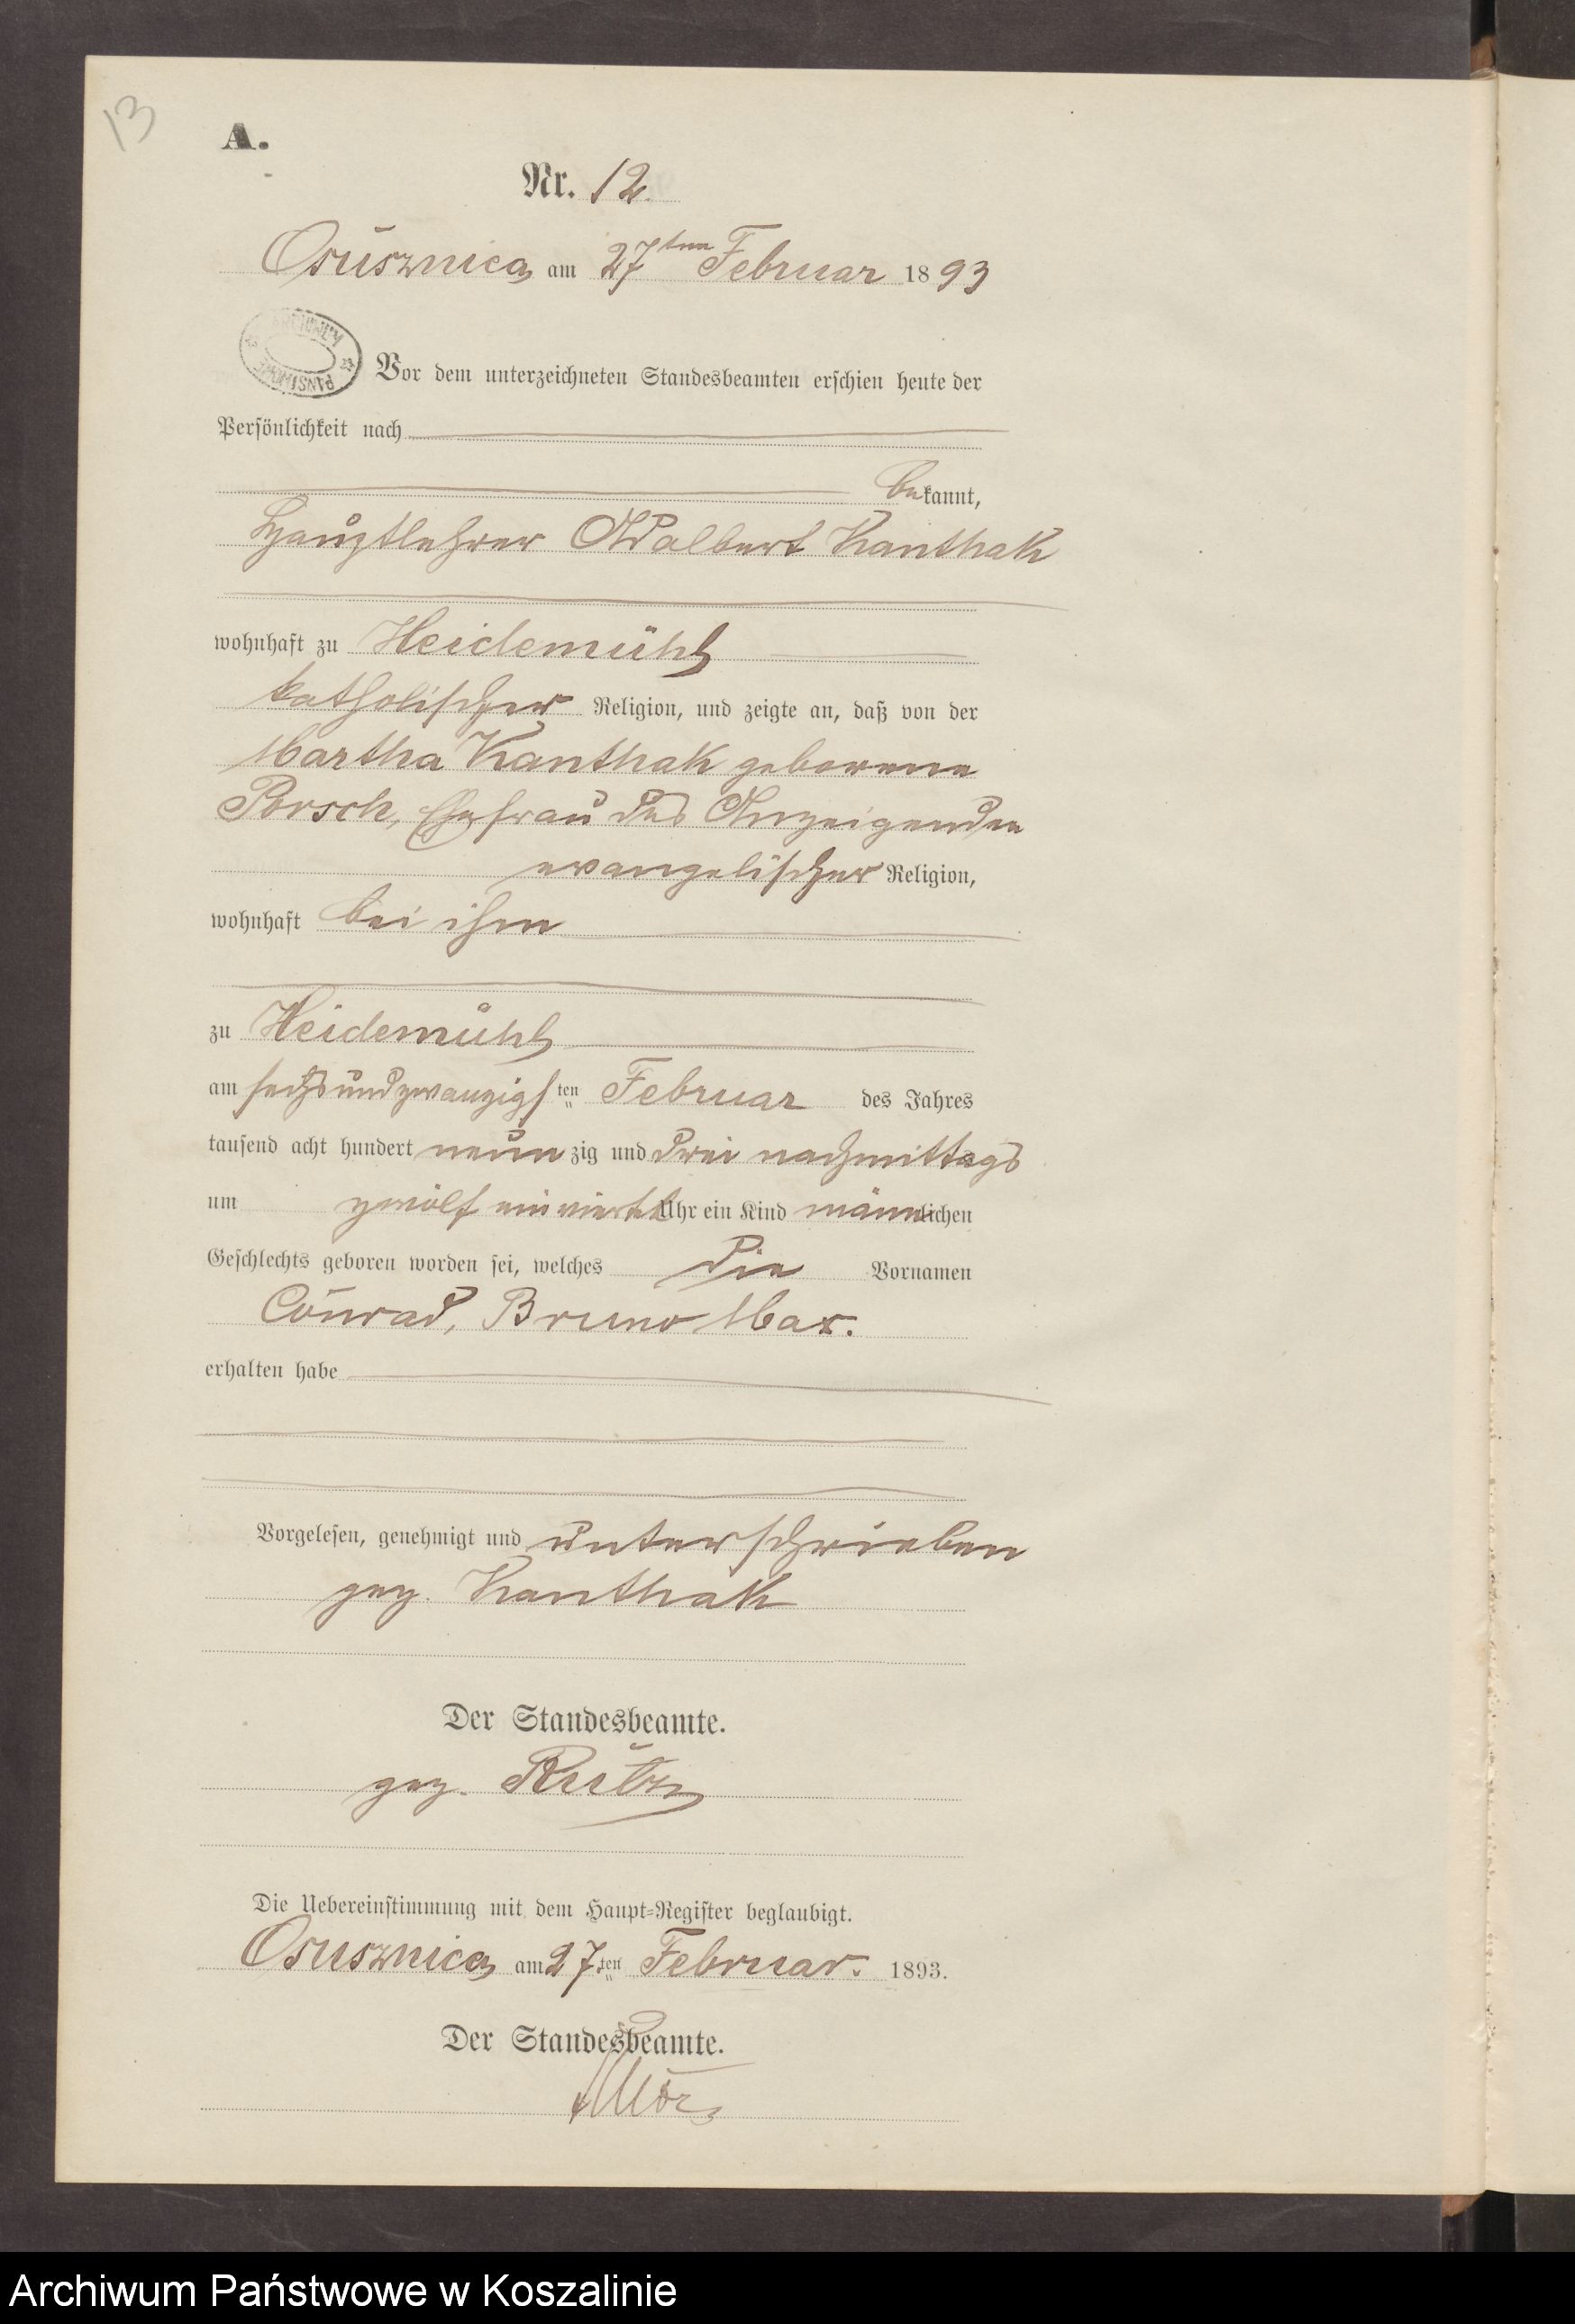 13
A.
Nr. 12.
Osusznica am 27ten Februar 1893
ARCHIWUM PAŃSTWOWE
Vor dem unterzeichneten Standesbeamten erschien heute der
Persönlichkeit nach
bekannt,
Hauptlehrer Adalbert Kanthak
wohnhaft zu Heidemühl
katholischer Religion, und zeigte an, daß von der
Martha Kanthak geborene
Porsch, Ehefrau des Anzeigenden
evangelischer Religion,
wohnhaft bei ihm
zu Heidemühl
am sechsundzwanzigsten Februar des Jahres
tausend acht hundert neunzig und drei nachmittags
um zwölf ein viertel Uhr ein Kind männlichen
Geschlechts geboren worden sei, welches die Vornamen
Conrad, Bruno Max.
erhalten habe
Vorgelesen, genehmigt und unterschrieben
gez. Kanthak
Der Standesbeamte.
gez.
Die Uebereinstimmung mit dem Haupt-Register beglaubigt.
Osusznica am 27ten Februar. 1893.
Der Standesbeamte.
Archiwum Państwowe w Koszalinie